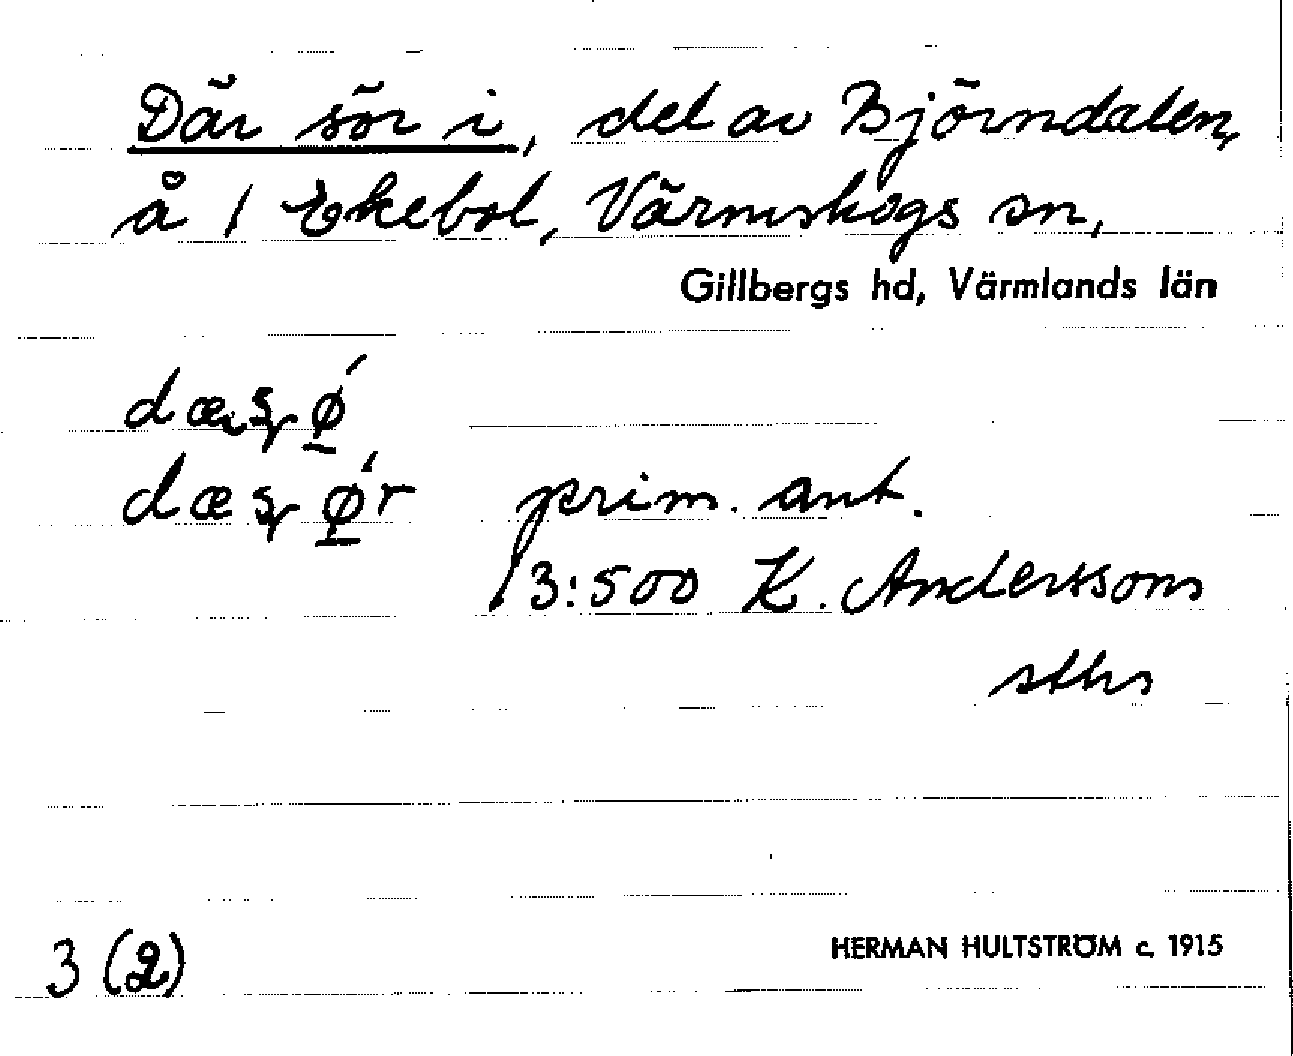 Där sör i, del av Björndalen,
å 1 Ekebol, Värmskogs sn,
Gillbergs hd, Värmlands län
dæ
dæ prim. ant.
13:500 K. Anderssons
sths
3 (2) HERMAN HULTSTRÖM c. 1915